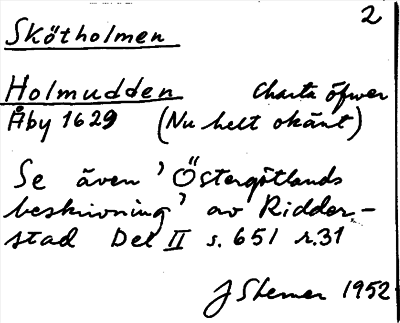 2
Skötholmen
Holmudden Charta öfwer
Åby 1629 (Nu helt okänt)
Se även 'Östergötlands
beskrivning' av Ridder-
stad Del II s. 651 r. 31
J 1952